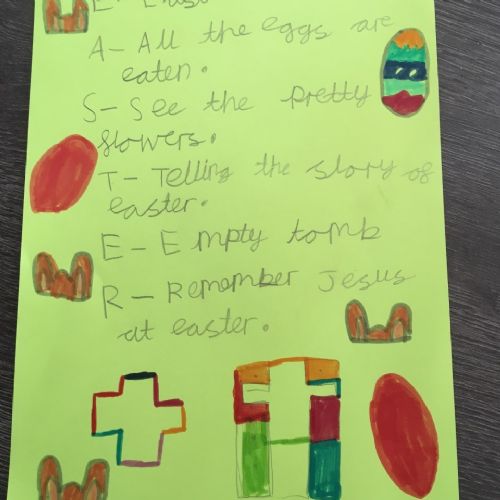 E-
A- All the eggs are
eaten.
S- See the pretty
flowers.
T- Telling the story of
easter.
E- Empty tomb
R- Remember Jesus
at easter.